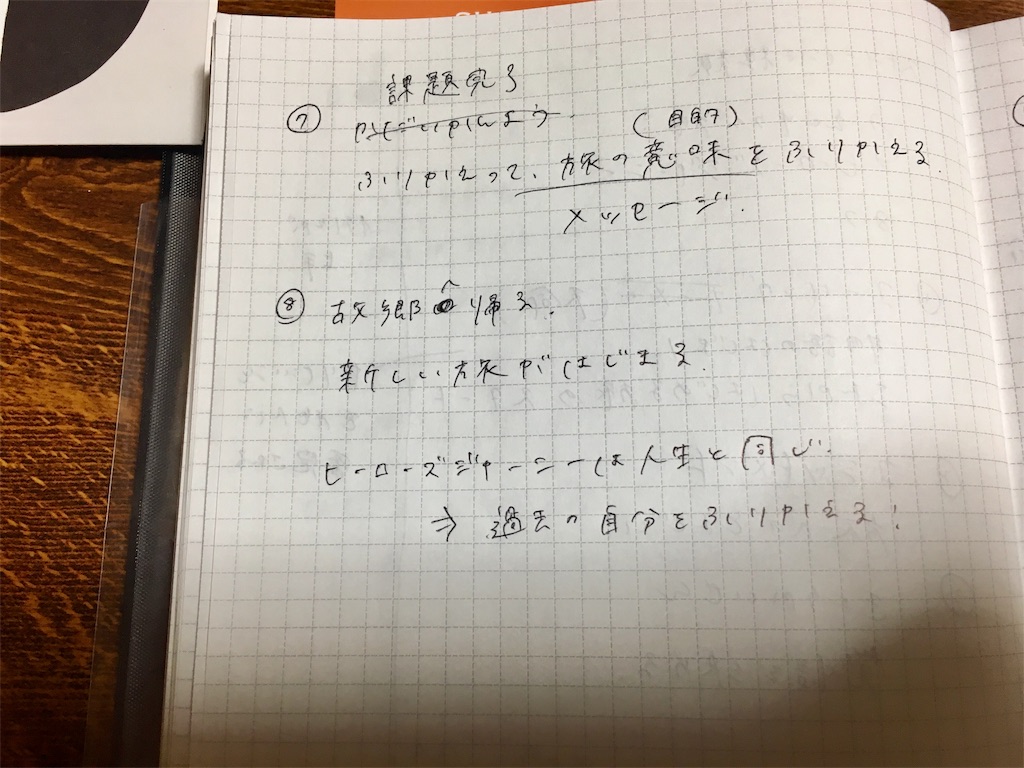 課題完了
⑦ かだいかんりょう
(目的)
ふりかえって、旅の意味をふりかえる
メッセージ.
⑧ 故郷へ帰る.
新しい旅がはじまる.
ヒーローズジャーニーは人生と同じ.
⇒ 過去の自分をふりかえる!